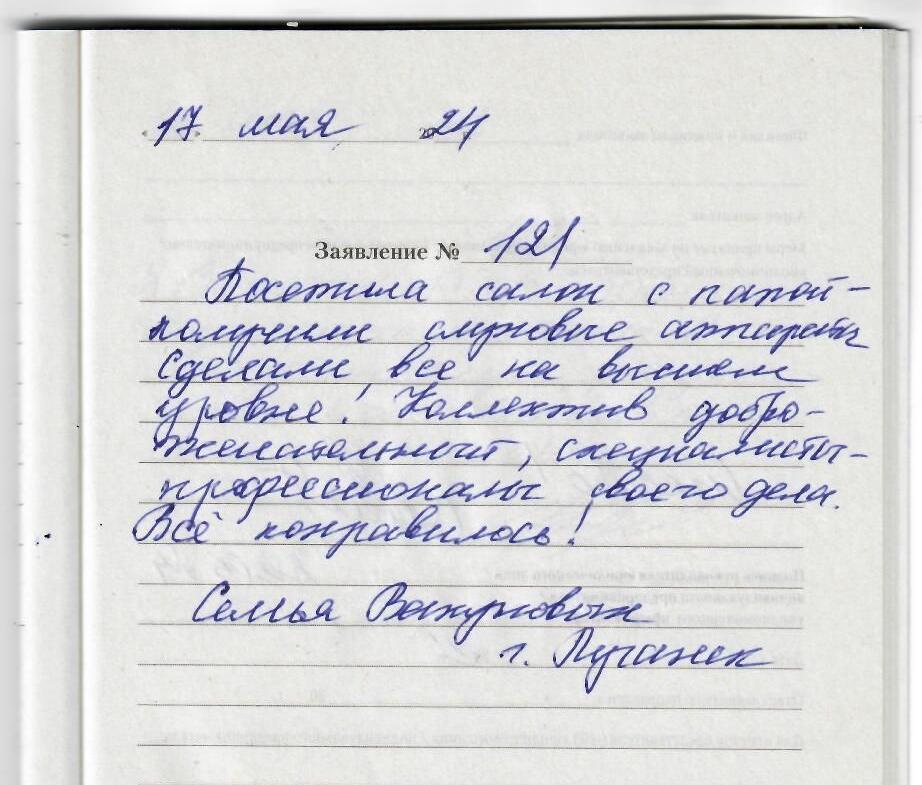 17 мая 2024
Заявление № 121
Посетила салон с папой –
получили слуховые аппараты
сделали все на высшем
уровне! Коллектив добро-
желательный, специалисты –
профессионалы своего дела.
Всё понравилось!
Семья
г. Луганск